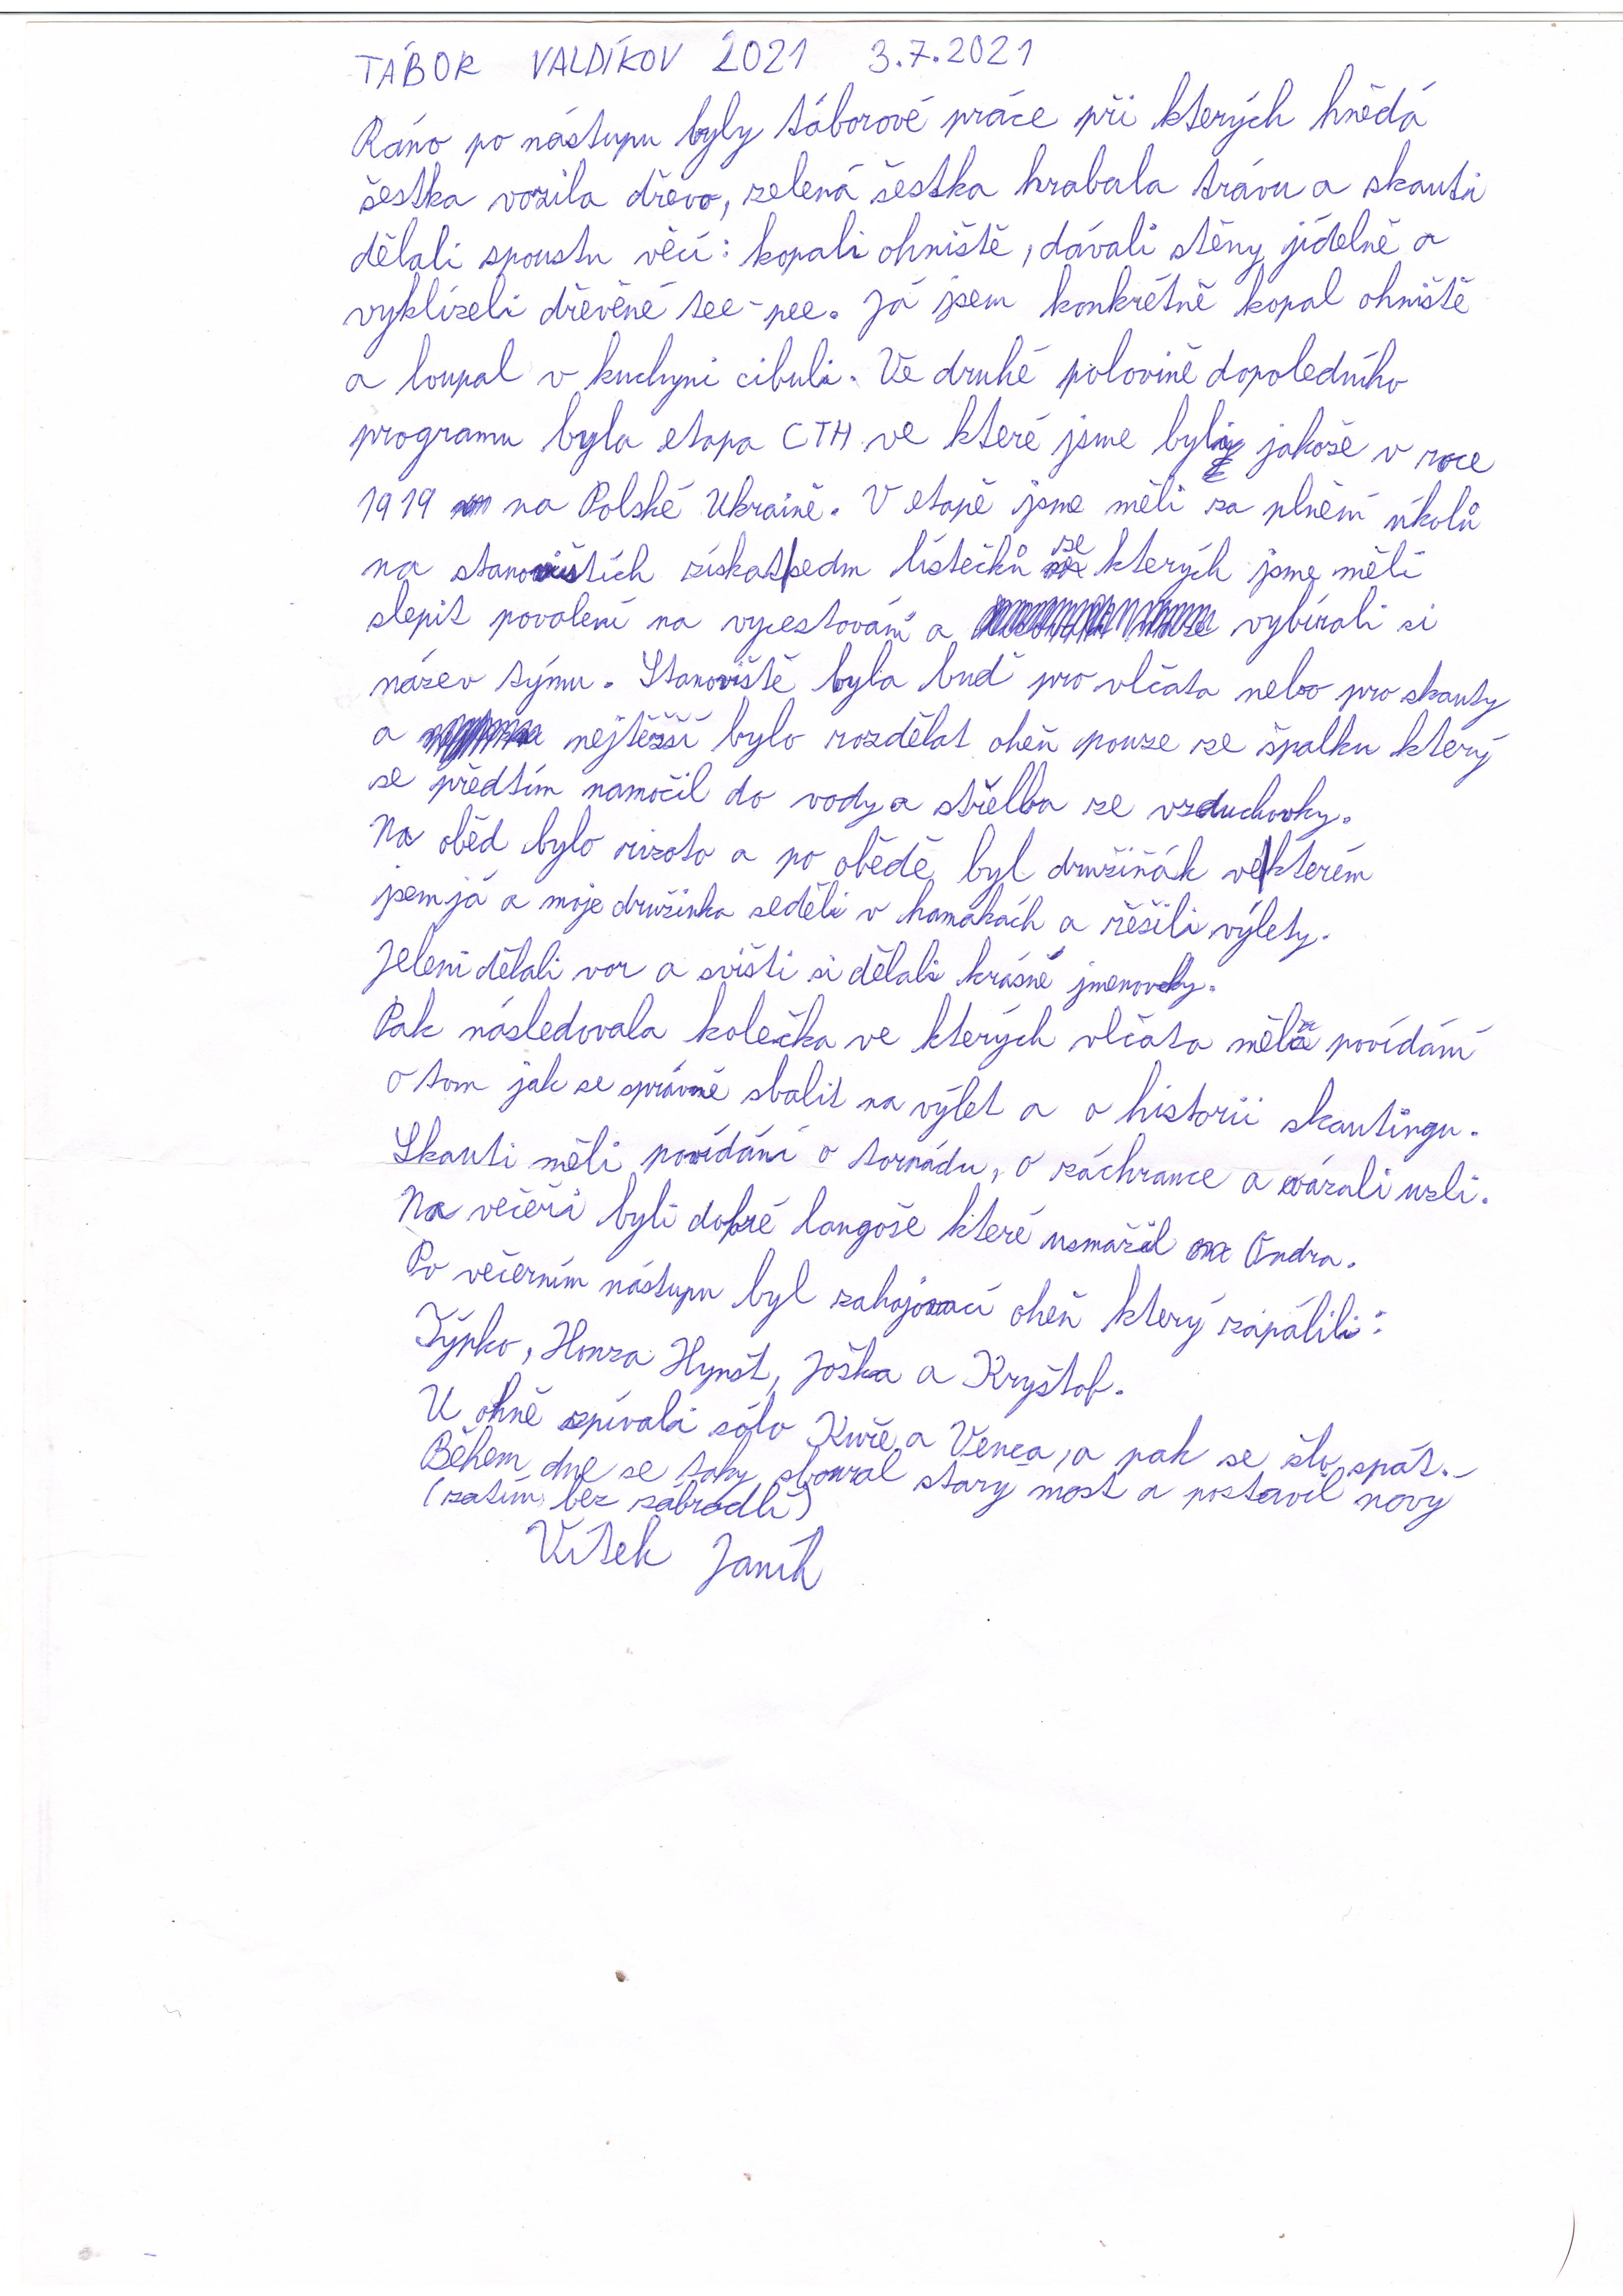 TÁBOR VALDÍKOV 2021 3.7.2021
Ráno po nástupu byly táborové práce při kterých hnědá
šestka vozila dřevo, zelená šestka hrabala trávu a skauti
dělali spoustu věcí: kopali ohniště, dávali stěny jídelně a
vyklízeli dřevěné tee-pee. Já jsem konkrétně kopal ohniště
a loupal v kuchyni cibuli. Ve druhé polovině dopoledního
programu byla etapa CTH ve které jsme byli jakože v roce
1919 na Polské Ukraině. V etapě jsme měli za plnění úkolů
na stanovištích získat sedm lístečků ze kterých jsme měli
slepit povolení na vycestování a vybírali si
název týmu. Stanoviště byla buď pro vlčata nebo pro skauty
a nejtěžší bylo rozdělat oheň pouze ze špalku který
se předtím namočil do vody a střelba ze vzduchovky.
Na oběd bylo rizoto a po obědě byl družiňák ve kterém
jsem já a moje družinka seděli v hamakách a řešili výlety.
Jeleni dělali vor a svišti si dělali krásné jmenovky.
Pak následovala kolečka ve kterých vlčata měla povídání
o tom jak se správně sbalit na výlet a o historii skautingu.
Skauti měli povídání o tornádu, o záchrance a vázali uzli.
Na večeři byli dobré langoše které usmažil Ondra.
Po večerním nástupu byl zahajovací oheň který zapálili:
Týpko, Honza Hynšt, Joška a Kryštof.
U ohně zpívali sólo Kuře a Venca, a pak se šlo spát.-
Během dne se taky sboural starý most a postavil nový
(zatím bez zábradlí)
Vítek Janík